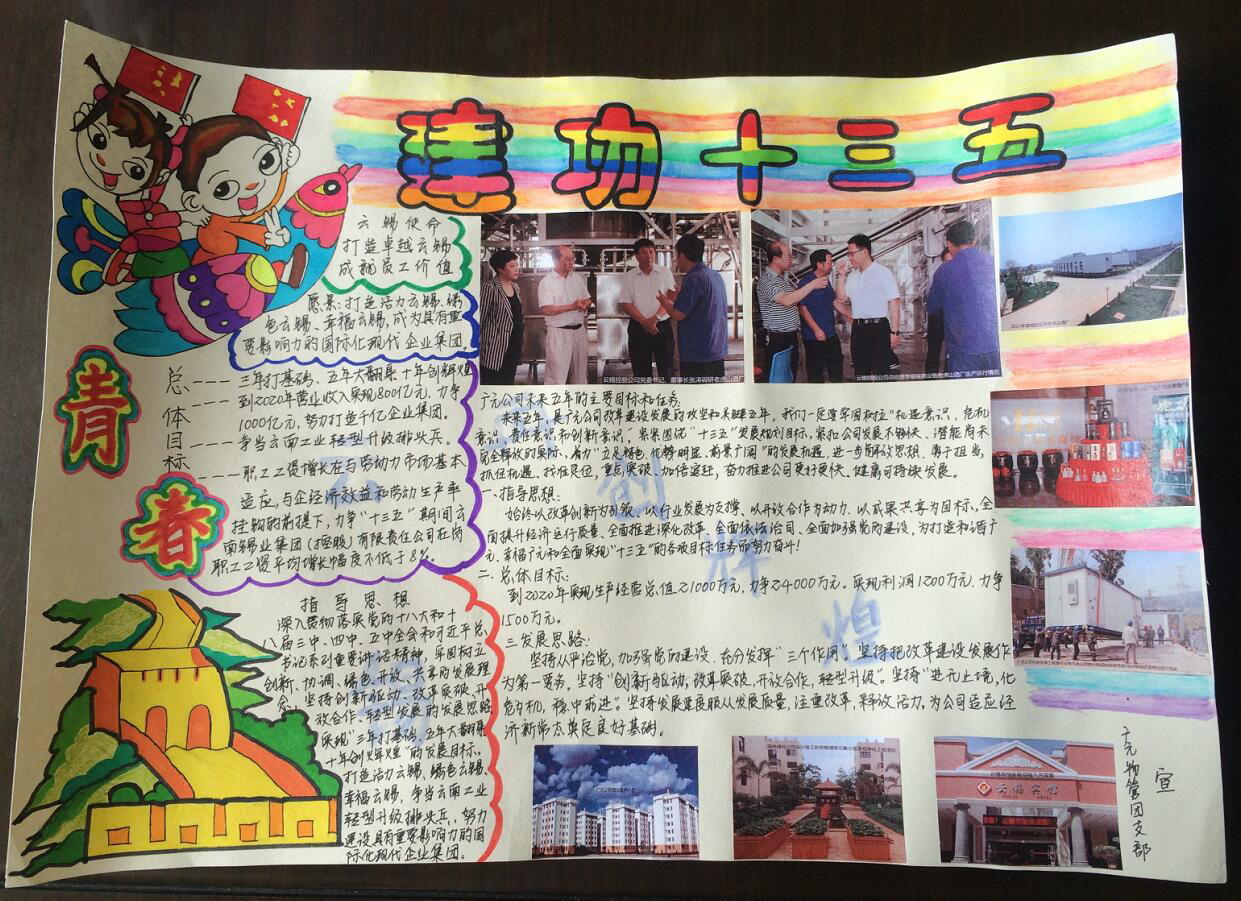 建功十三五
云锡使命
打造卓越云锡
成就员工价值
愿景:打造活力云锡、绿
色云锡、幸福云锡,成为具有重
要影响力的国际化现代企业集团。
青
春
总体目标
三年打基础、五年大翻身、十年创辉煌
到2020年营业收入实现800亿元,力争
1000亿元,努力打造千亿企业集团。
争当云南工业轻型升级排头兵。
职工工资增长应与劳动力市场基本
适应,与企经济效益和劳动生产率
挂钩的前提下,力争“十三五”期间云
南锡业集团(控股)有限责任公司在岗
职工工资平均增长幅度不低于8%。
指导思想
深入贯彻落实党的十八大和十
八届三中、四中、五中全会和习近平总
书记系列重要讲话精神,牢固树立
创新、协调、绿色、开放、共享的发展理
念,坚持创新驱动、改革突破、开
放合作、轻型发展的发展思路
实现“三年打基础、五年大翻身
十年创辉煌”的发展目标。
打造活力云锡、绿色云锡、
幸福云锡,争当云南工业
轻型升级排头兵,努力
建设具有重要影响力的国
际化现代企业集团。
云锡控股公司党委书记、董事长张涛调研老虎山酒厂
广元公司未来五年的主要目标和任务
未来五年,是广元公司改革建设发展的攻坚和关键五年,我们一定要牢固树立“机遇意识,危机
意识,责任意识和创新意识,”紧紧围绕“十三五”发展规划目标,紧扣公司发展不够快、潜能尚未
完全释放的实际,着力“立足特色,优势明显,前景广阔”的发展机遇,进一步解放思想,勇于担当,
抓住机遇、找准定位,重点突破,加倍追赶,奋力推进公司更好更快、健康可持续发展。
一、指导思想:
始终以改革创新为引领,以行业发展为支撑,以开放合作为动力,以成果共享为目标,全
面提升经济运行质量、全面推进深化改革、全面依法治司、全面加强党的建设,为打造和谐广
元、幸福广元和全面实现“十三五”的各项目标任务而努力奋斗!
二、总体目标:
到2020年实现生产经营总值21000万元,力争24000万元。实现利润1200万元,力争
1500万元。
三、发展思路:
坚持从严治党,加强党的建设,充分发挥“三个作用”。坚持把改革建设发展作
为第一要务。坚持“创新驱动,改革突破,开放合作,轻型升级”。坚持“进无止境,化
危为机,稳中前进”。坚持发展速度服从发展质量,注重改革,释放活力,为公司适应经
济新常态奠定良好基础。
创
辉
煌
云锡宾馆
广元物管团支部
宣